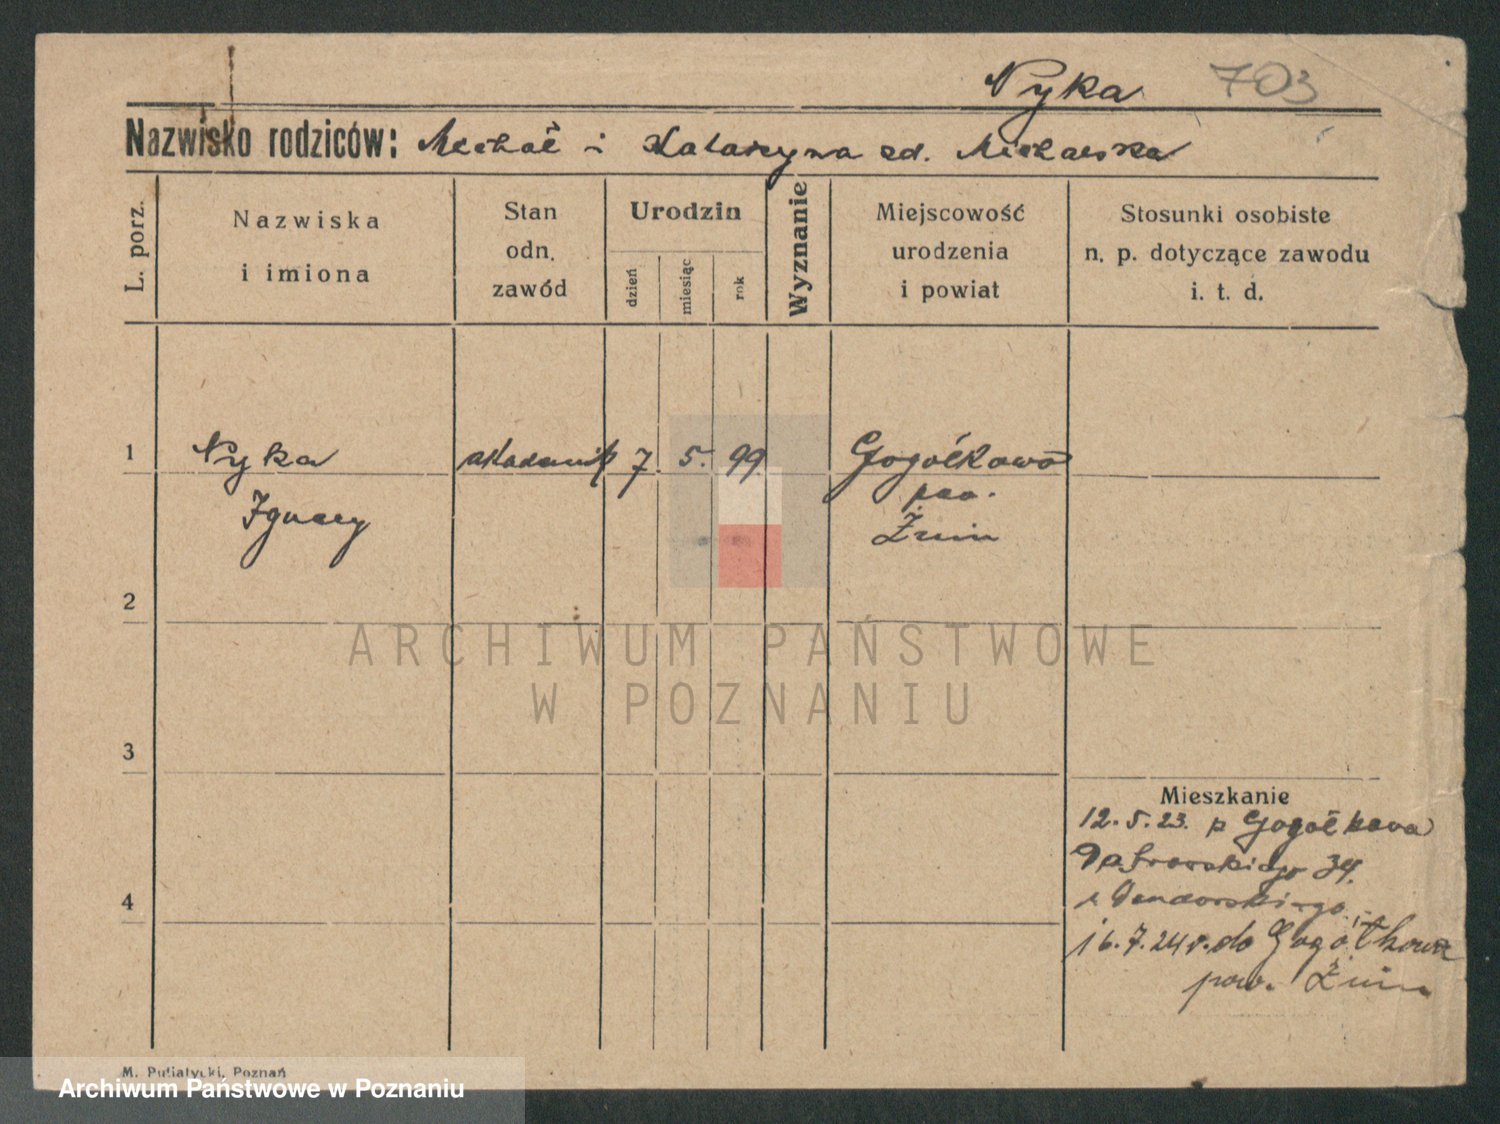 Nyka 703
Nazwisko rodziców: Michał i Katarzyna zd. Michalska
L. porz.
Nazwiska
i imiona
Stan
odn.
zawód
Urodzin
dzień
miesiąc
rok
Wyznanie
Miejscowość
urodzenia
i powiat
Stosunki osobiste
n. p. dotyczące zawodu
i. t. d.
1 Nyka akademik 7. 5. 99. Gogółkowo
Ignacy
pow.
Żnin
2
3
4
Mieszkanie
12.5.23. z Gogółkowa
Dąbrowskiego 34.
u
16.7.24 r. do Gogółkowa
pow. Żnin
M. Putiatycki, Poznań
ARCHIWUM PAŃSTWOWE
W POZNANIU
Archiwum Państwowe w Poznaniu